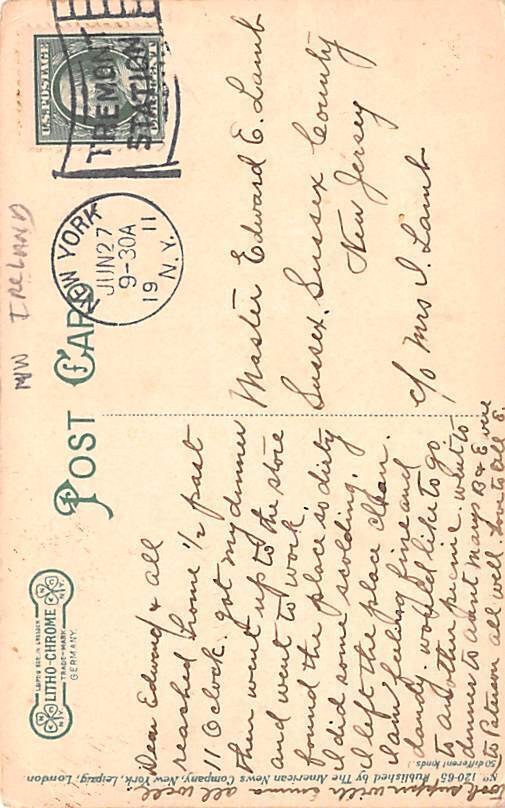 MW IRELAND
POST CARD
LEIPZIG BERLIN DRESDEN
LITHO-CHROME
TRADE-MARK
GERMANY
U.S. POSTAGE
ONE CENT
TREMONT
STATION
NEW YORK
JUN 27
9-30A
19 11
N.Y.
Dear Edward & all
reached home 1/2 past
11 O clock. got my dinner
then went up to the store
and went to work.
found the place so dirty
I did some scolding.
I left the place clean.
I am feeling fine and
dandy. would like to go
to another picnic. went to
dinner to Aunt Marys B & E were
to Paterson all well. love to all E.
Took supper with Emma all well.
Master Edward E. Lamb
Sussex, Sussex County
New Jersey
c/o Mrs I. Lamb
No 120-65 Published by The American News Company, New York, Leipzig, London
(50 different kinds.)